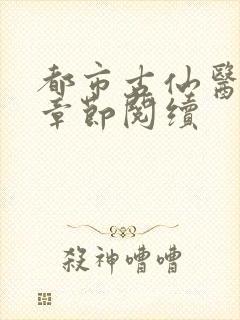 都市古仙醫
章節閱續
殺神嘈嘈